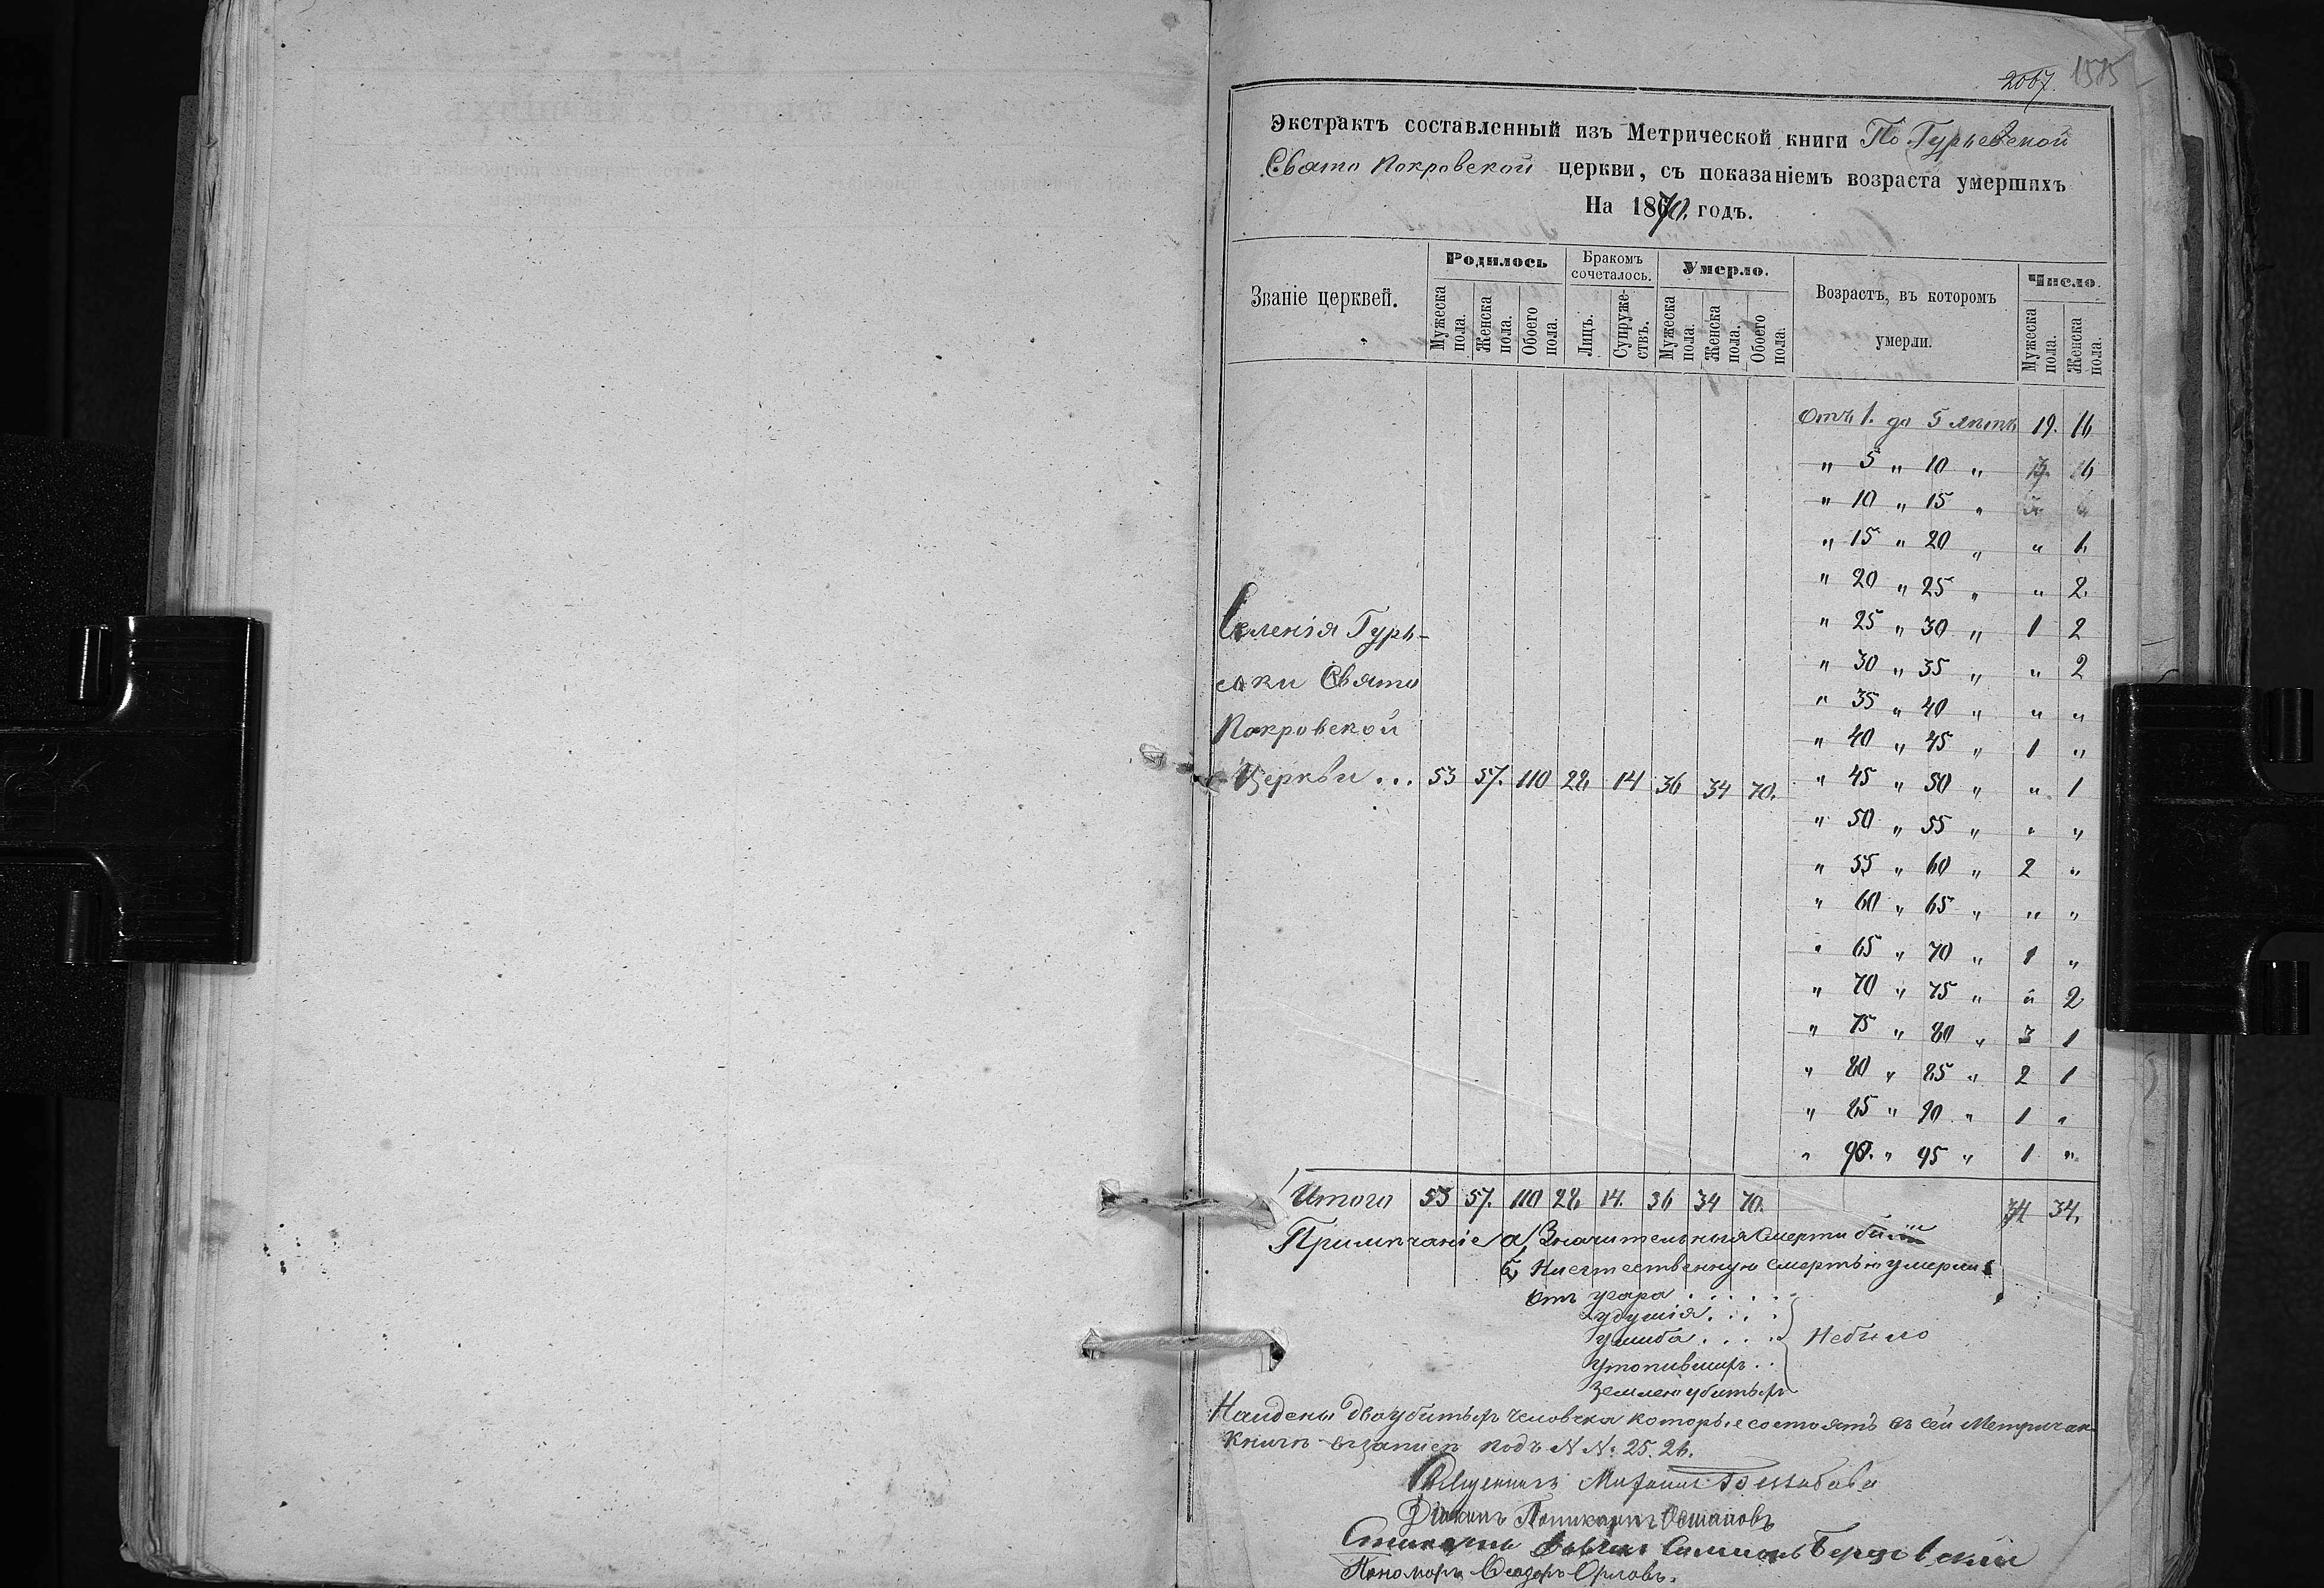 2067. 1585
Экстрактъ составленный изъ Метрической книги По Гурьевской
Свято Покровской церкви, съ показаніемъ возраста умершихъ
На 1870. годъ.
Званіе церквей.
Родилось
Мужеска пола.
Женска пола.
Обоего пола.
Бракомъ сочеталось.
Лицъ.
Супружествъ.
Умерло.
Мужеска пола.
Женска пола.
Обоего пола.
Возрастъ, въ которомъ
умерли.
Число.
Мужеска пола.
Женска пола.
Отъ 1. до 5 лѣтъ 19. 16
" 5 " 10 " 16
" 10 " 15 "
" 15 " 20 " " 1.
" 20 " 25 " " 2.
" 25 " 30 " 1 2
" 30 " 35 " " 2
" 35 " 40 " " "
" 40 " 45 " 1 "
" 45 " 50 " " 1
" 50 " 55 " " "
" 55 " 60 " 2 "
" 60 " 65 " " "
" 65 " 70 " 1 "
" 70 " 75 " " 2
" 75 " 80 " 3 1
" 80 " 85 " 2 1
" 85 " 90 " 1 "
" 90. " 95 " 1 "
Селенія Гурь-
евки Свято
Покровской
Церкви ... 53 57. 110 28 14 36 34 70.
Итого 53 57. 110 28 14. 36 34 70. 34 34.
Примѣчаніе а, Значительныя смерти
б, Неестественную смертью умерли
Отъ угара . . . . .
Удушія . . . .
Ушиба . . . . Небыло
Утопившихъ . .
Землею убитыхъ
Найдены два убитыхъ человека которые состоятъ въ сей Метричак.
книгѣ въ записи подъ N N: 25. 26.
Священникъ Михаилъ
Діаконъ Поликарпъ
Симіонъ
Пономарь Феодоръ Орловъ.